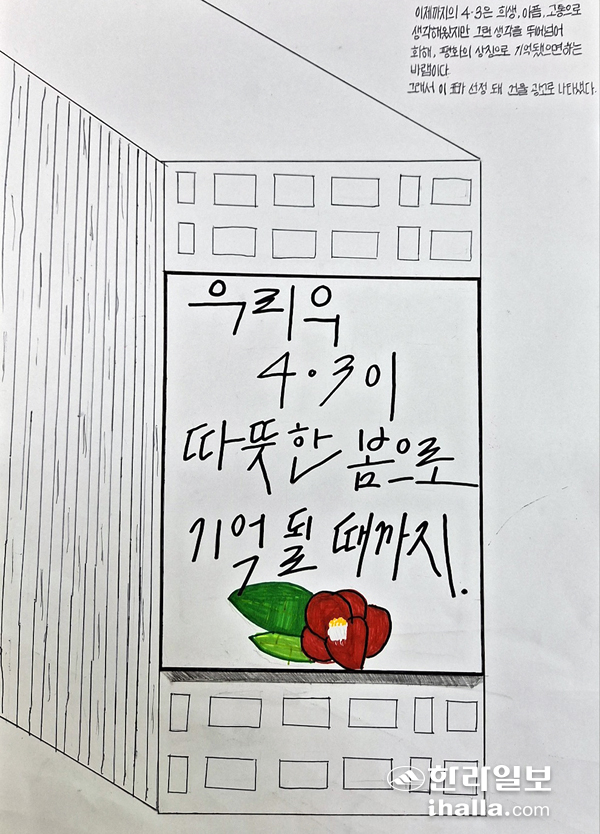 이제까지의 4·3은 희생, 아픔, 고통으로
생각해왔지만 그런 생각을 뛰어넘어
화해, 평화의 상징으로 기억됐으면하는
바램이다.
그래서 이 포카 선정 돼 건물 광고로 나타냈다.
우리의
4·3이
따뜻한 봄으로
기억될 때까지.
한라일보
ihalla.com